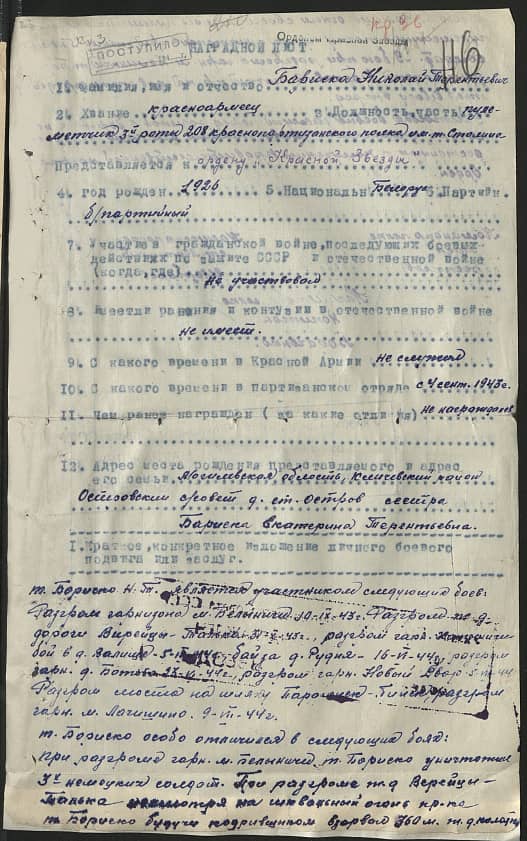 Орденом Красной Звезды
кр.Зв
ПОСТУПИЛО
НАГРАДНОЙ ЛИСТ. 116
1. Фамилия имя и отчество Бариска Николай Терентьевич
2. Звание красноармеец 3. Должность, часть пуле-
метчик 3й роты 208 краснопартизанского полка им. т. Сталина
Представляется к ордену "Красной Звезды
4. год рожден. 1926 5. Национальн Белорус 6. Партийн.
б/партийный
7. Участие в гражданской войне, последующих боевых
действиях по защите СССР и отечественной войне
(когда, где) не участвовал
8. Имеетли ранения и контузии в отечественной войне
не имеет.
9. С какого времени в Красной Армии не служил
10. С какого времени в партизанском отряде с 4 сент. 1943 г.
11. Чем ранее награжден (за какие отличия) не награждался
12. Адрес места рождения представляемого и адрес
его семьи. Могилевская область, Кличевский район
Островский сровет д. ст. Остров сестра
Бариска Екатерина Терентьевна.
I. Краткое, конкретное изложение личного боевого
подвига или заслуг.
т. Бориско Н.Т. является участником следующих боев:
Разгром гарнизона м. Белыничи 43г. Разгром ж.д-
дороги Верейцы - Талька 43г., разгром гарн.
бой в д. 5- 44г. бой за д. Рудня - 16-VI-44г. разгром
гарн. д. 44г., разгром гарн. Новый Двор 5- 44
Разгром моста на шляху разгром
гарн. м. Лапичино. 9- 44г.
т. Бориско особо отличился в следующих боях:
При разгроме гарн. м. Белыничи т. Бориско уничтожил
3х немецких солдат. При разгроме ж.д Верейцы -
Талька несмотря на шквальный огонь пр-ка
т. Бориско будучи подрывником взорвал 360 м. ж.д. полотна